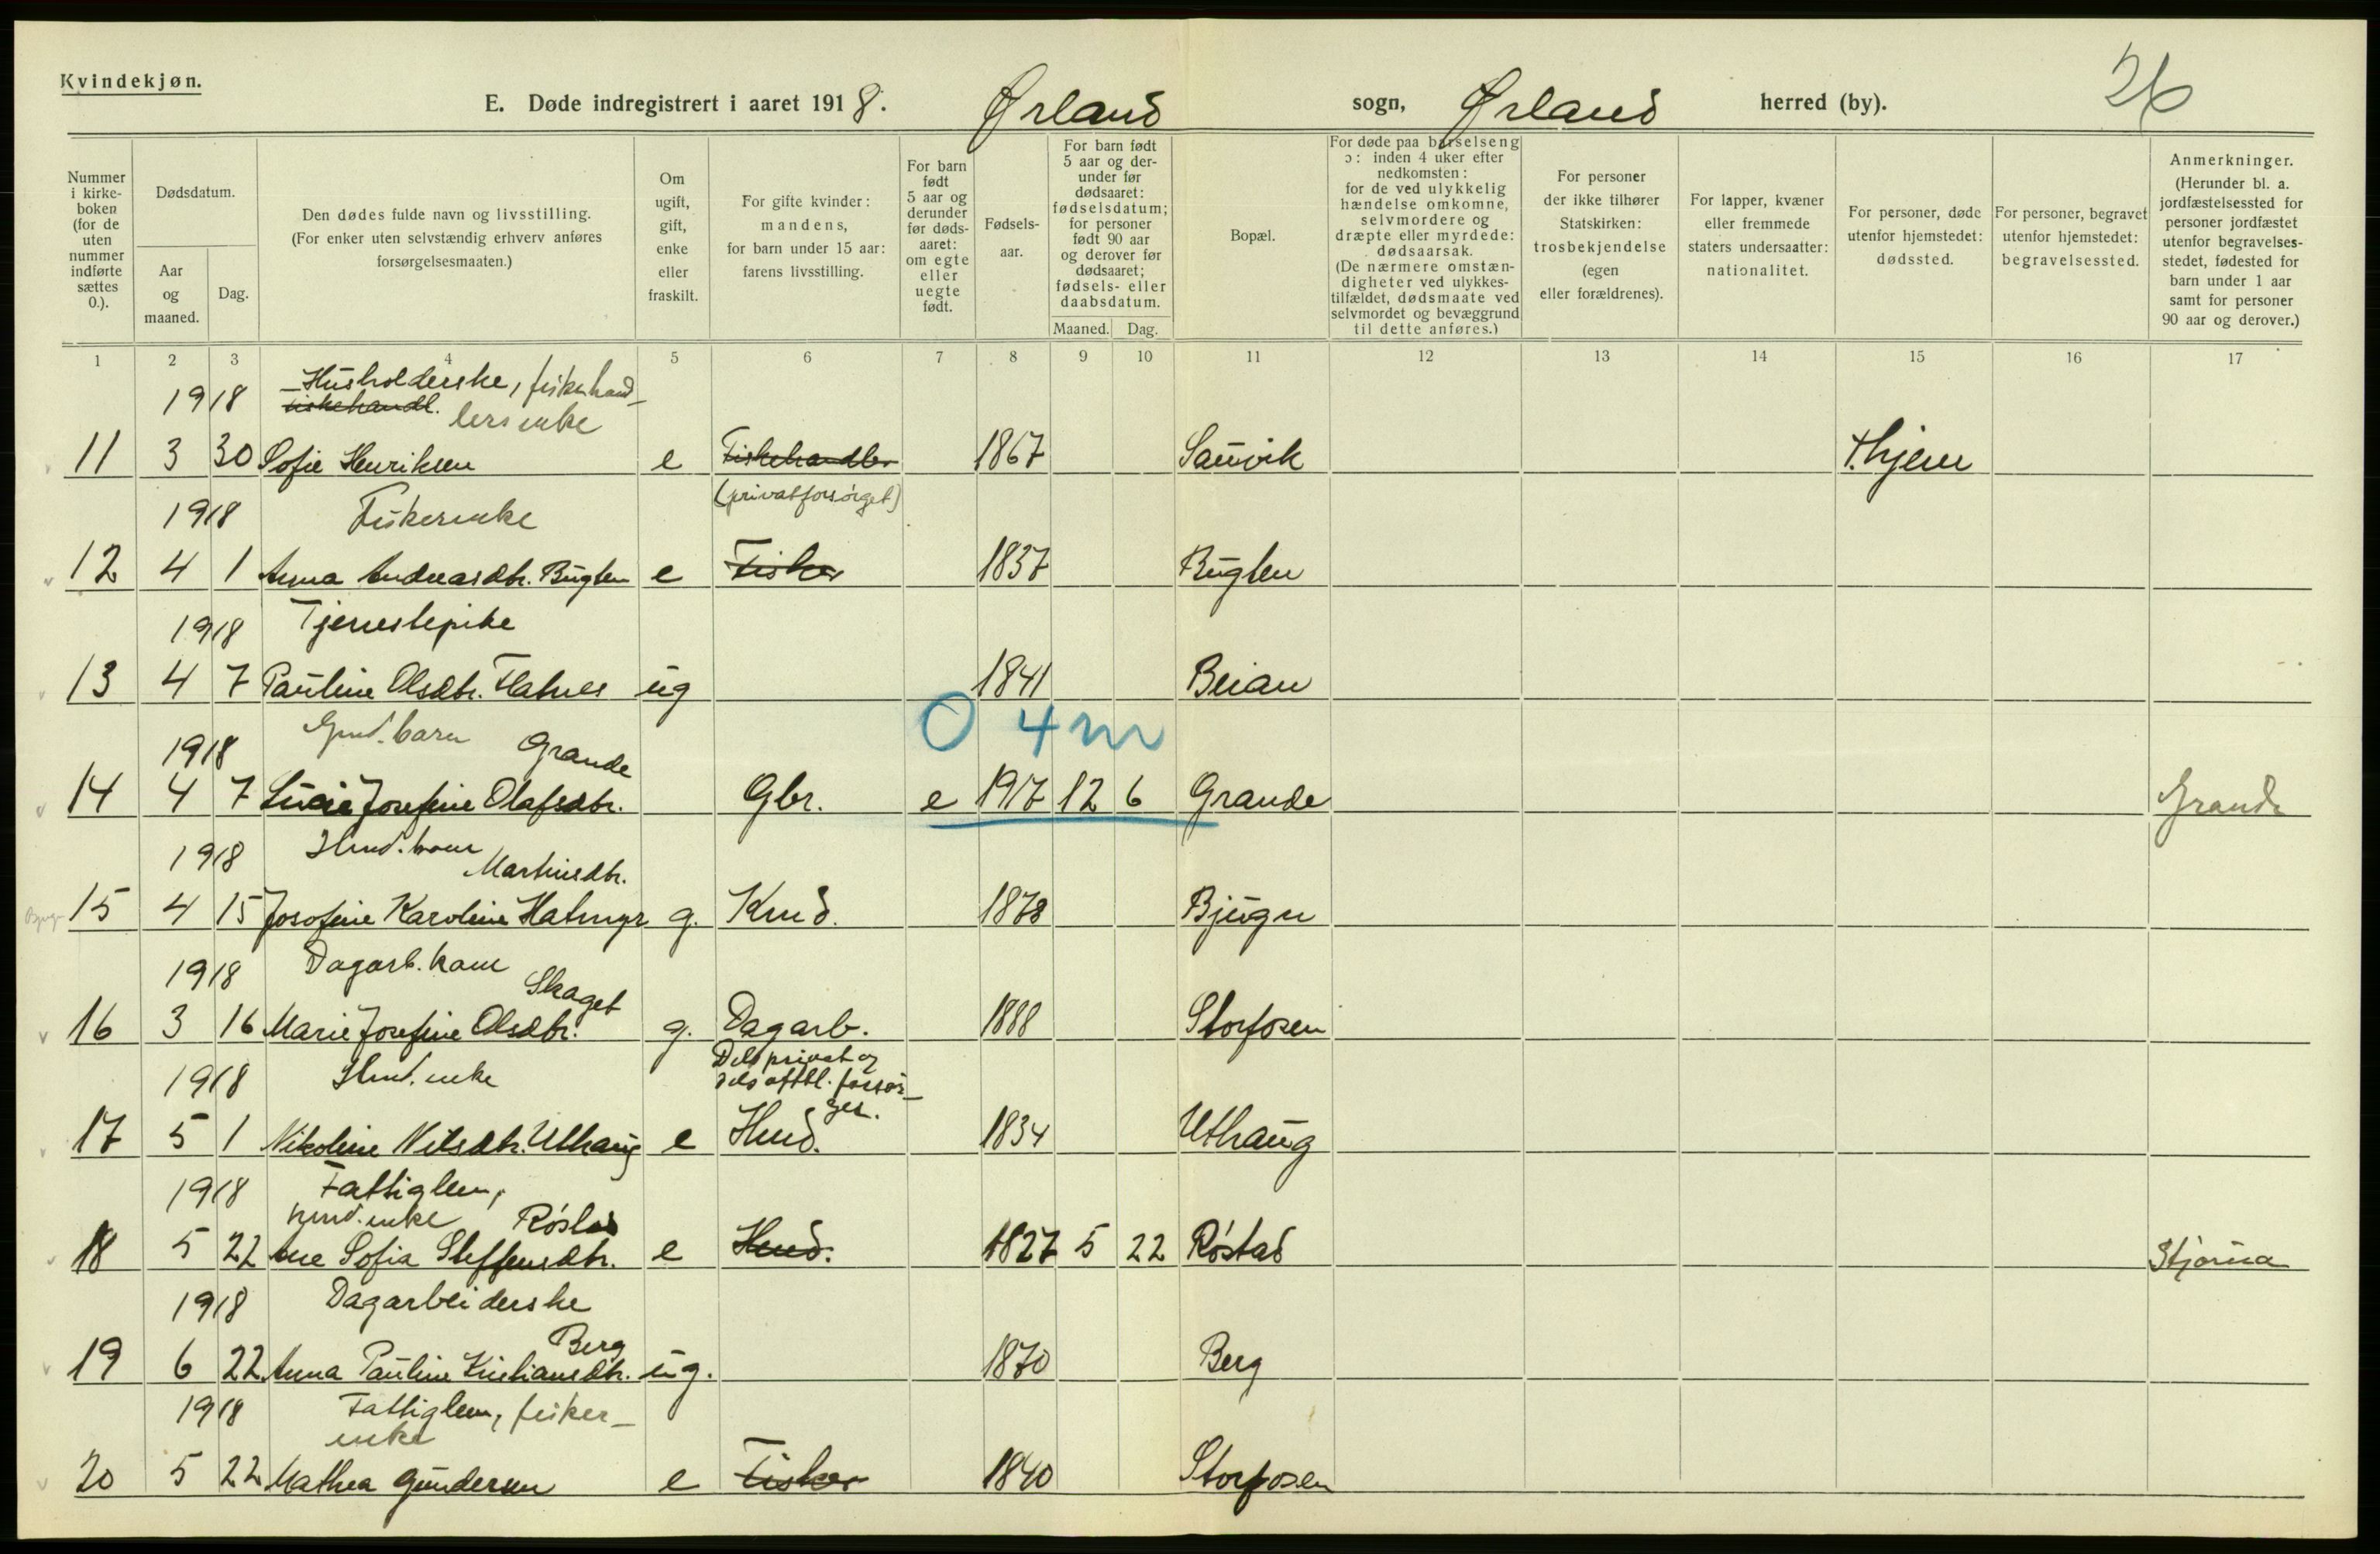 Kvindekjøn.
26
E. Døde indregistrert i aaret 1918. Ørland sogn, Ørland herred (by).
Nummer i kirke-boken (for de uten nummer indførte sættes 0.).
Dødsdatum.
Aar og maaned.
Dag.
Den dødes fulde navn og livsstilling. (For enker uten selvstændig erhverv anføres forsørgelsesmaaten.)
Om ugift, gift, enke eller fraskilt.
For gifte kvinder: mandens, for barn under 15 aar: farens livsstilling.
For barn født 5 aar og derunder før døds-aaret: om egte eller uegte født.
Fødsels-aar.
For barn født 5 aar og der-under før dødsaaret: fødselsdatum; for personer født 90 aar og derover før dødsaaret; fødsels- eller daabsdatum.
Maaned. Dag.
Bopæl.
For døde paa barselseng ɔ: inden 4 uker efter nedkomsten: for de ved ulykkelig hændelse omkomne, selvmordere og dræpte eller myrdede: dødsaarsak. (De nærmere omstæn-digheter ved ulykkes-tilfældet, dødsmaate ved selvmordet og bevæggrund til dette anføres.)
For personer der ikke tilhører Statskirken: trosbekjendelse (egen eller forældrenes).
For lapper, kvæner eller fremmede staters undersaatter: nationalitet.
For personer, døde utenfor hjemstedet: dødssted.
For personer, begravet utenfor hjemstedet: begravelsessted.
Anmerkninger. (Herunder bl. a. jordfæstelsessted for personer jordfæstet utenfor begravelses-stedet, fødested for barn under 1 aar samt for personer 90 aar og derover.)
1 2 3 4 5 6 7 8 9 10 11 12 13 14 15 16 17
1918 Husholderske, fiskehand-
fiskehandl. lersenke
11 3 30 Sofie Henriksen e Fiskehandler 1867 Sauvik T.hjem
(privatforsørget)
1918 Fiskerenke
12 4 1 Anna Andreasdtr. Buglen e Fisker 1837 Buglen
1918 Tjenestepike
13 4 7 Pauline Olsdtr. Flatnes ug 1841 Beian
0 4 m
1918 Grande
14 4 7 Lucie Josefine Olafsdtr. Gbr. e 1917 12 6 Grande Grande
1918 Martinsdtr.
15 4 15 Josofine Karoline Hatmyr g. 1878 Bjugn
1918 Dagarb. kone Skaget
16 3 16 Marie Josefine Olsdtr. g. Dagarb. 1888 Storfosen
Dels privat og
dels offtl. forsør-
get.
1918 Hmd. enke
17 5 1 Nikoline Nilsdtr. Uthaug e Hmd. 1834 Uthaug
1918 Fattiglem,
hmd. enke Røstad
18 5 22 Ane Sofia Steffensdtr. e Hmd. 1827 5 22 Røstad Stjørna
1918 Dagarbeiderske
Berg
19 6 22 Anna Pauline Kristiansdtr. ug. 1870 Berg
1918 Fattiglem, fisker-
enke
20 5 22 Mathea Gundersen e Fisker 1840 Storfosen